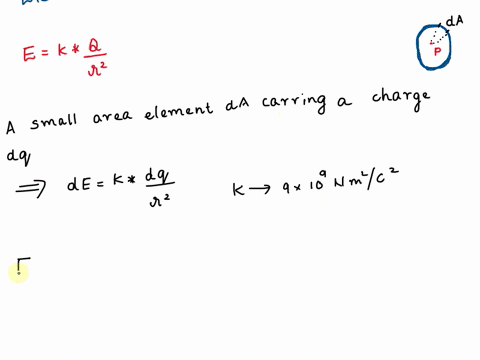 dA
P
E = k * Q/r²
A small area element dA carring a charge
dq
⟹ dE = k * dq/r²    k → 9 * 10⁹ Nm²/c²